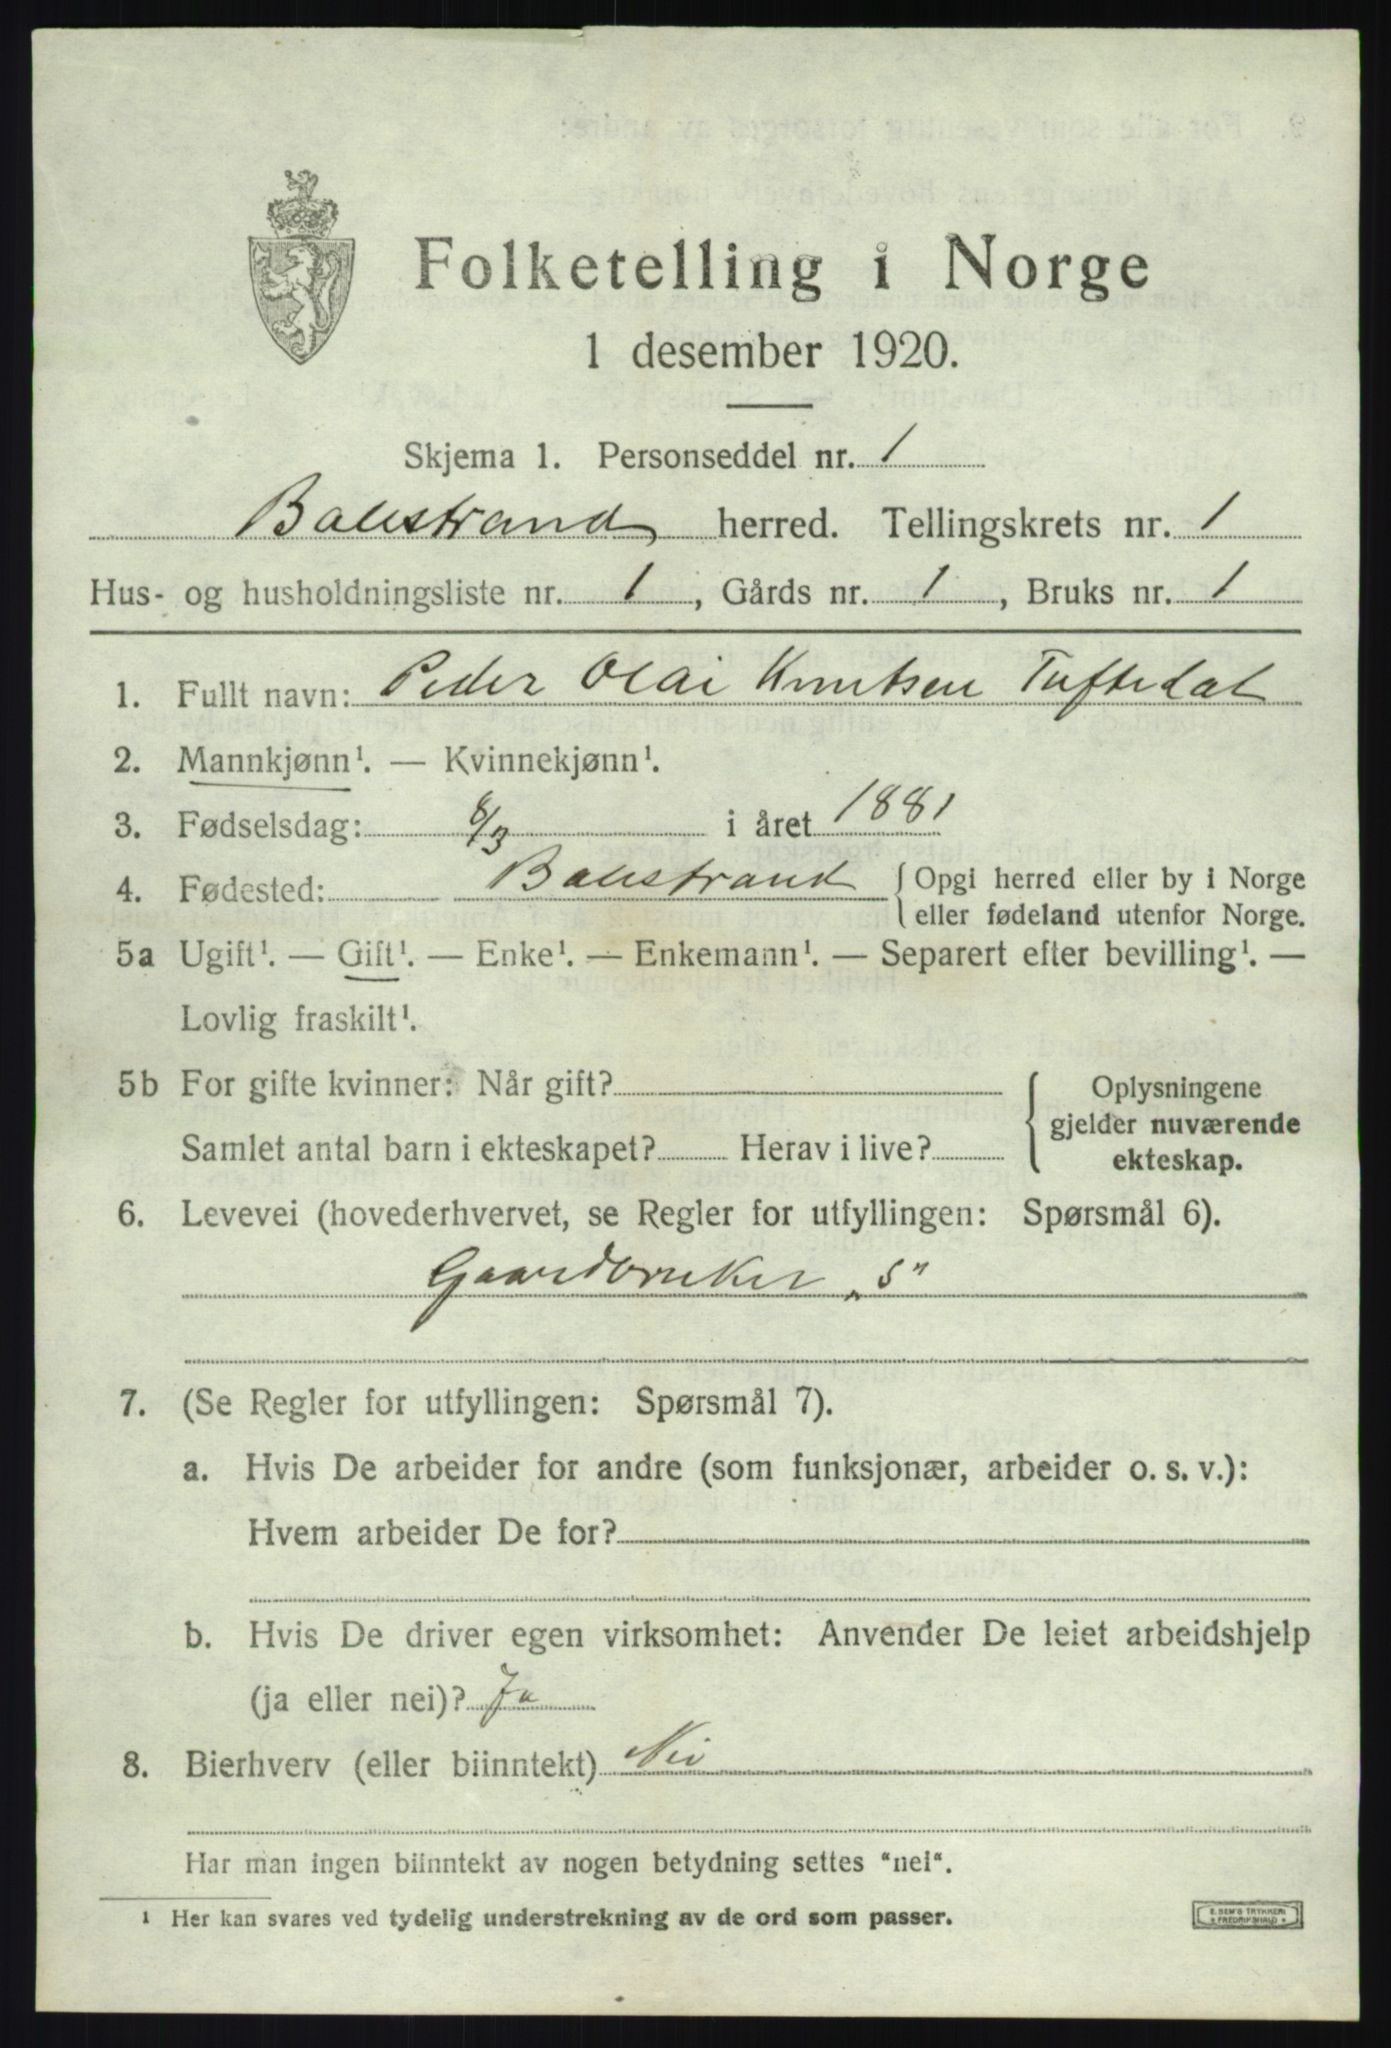 Folketelling i Norge
1 desember 1920.
Skjema 1. Personseddel nr. 1
Balestrand herred. Tellingskrets nr. 1
Hus- og husholdningsliste nr. 1, Gårds nr. 1, Bruks nr. 1
1. Fullt navn: Peder Olai Knutsen Tuftedal
2. Mannkjønn¹. — Kvinnekjønn¹.
3. Fødselsdag: 8/3 i året 1881
4. Fødested: Balestrand { Opgi herred eller by i Norge
eller fødeland utenfor Norge.
5a Ugift¹. — Gift¹. — Enke¹. — Enkemann¹. — Separert efter bevilling¹. —
Lovlig fraskilt¹.
5b For gifte kvinner: Når gift? { Oplysningene
gjelder nuværende
Samlet antal barn i ekteskapet? Herav i live? ekteskap.
6. Levevei (hovederhvervet, se Regler for utfyllingen: Spørsmål 6).
Gaardbruker „S"
7. (Se Regler for utfyllingen: Spørsmål 7).
a. Hvis De arbeider for andre (som funksjonær, arbeider o. s. v.):
Hvem arbeider De for?
b. Hvis De driver egen virksomhet: Anvender De leiet arbeidshjelp
(ja eller nei)? Ja
8. Bierhverv (eller biinntekt) Nei
Har man ingen biinntekt av nogen betydning settes "nei".
¹ Her kan svares ved tydelig understrekning av de ord som passer.
E. SEM'S TRYKKERI
FREDRIKSHALD